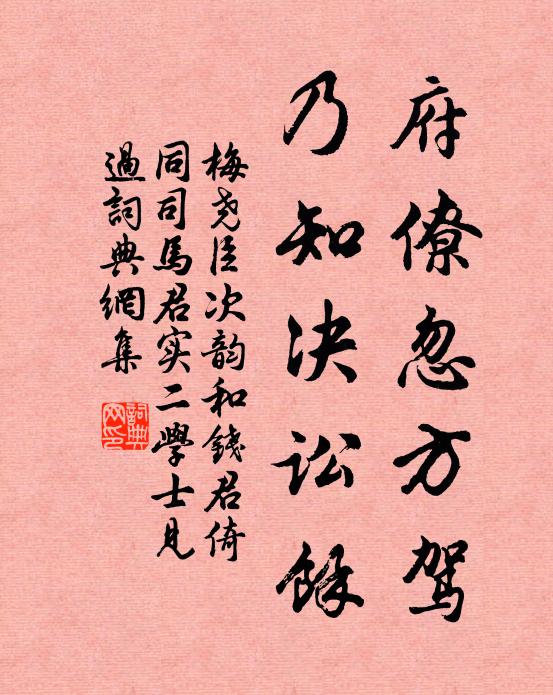 府僚忽方驾
乃知决讼馀
梅尧臣次韵和錢君倚
同司馬君实二學士見
過詞典網集
詞典网印